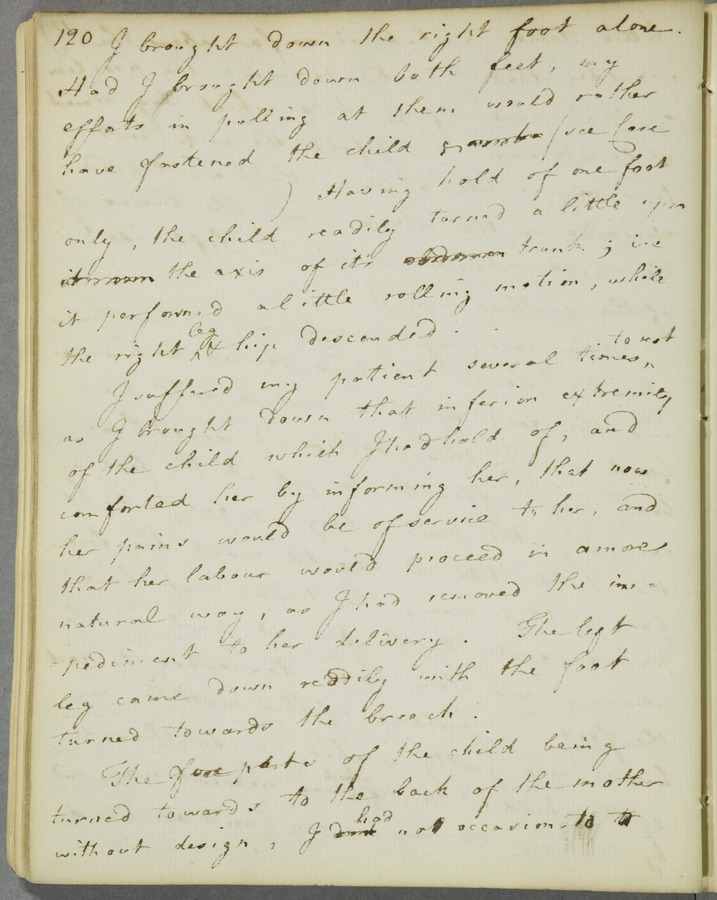 120 I brought down the right foot alone.
Had I brought down both feet, my
efforts in pulling at them would rather
have fastened the child (see Case
) Having hold of one foot
only, the child readily turned a little upon
the axis of its abdomen trunk; i.e
it performed a little rolling motion, while
leg
the right & hip descended.
to rest
I suffered my patient several times,
as I brought down that inferior extremity
of the child which I had hold of, and
comforted her by informing her, that now
her pains would be of service to her, and
that her labour would proceed in a more
natural way, as I had removed the im-
-pediment to her delivery. The left
leg came down readily with the foot
turned towards the breech.
The fore parts of the child being
turned towards to the back of the mother
had
without design, I not occasion to